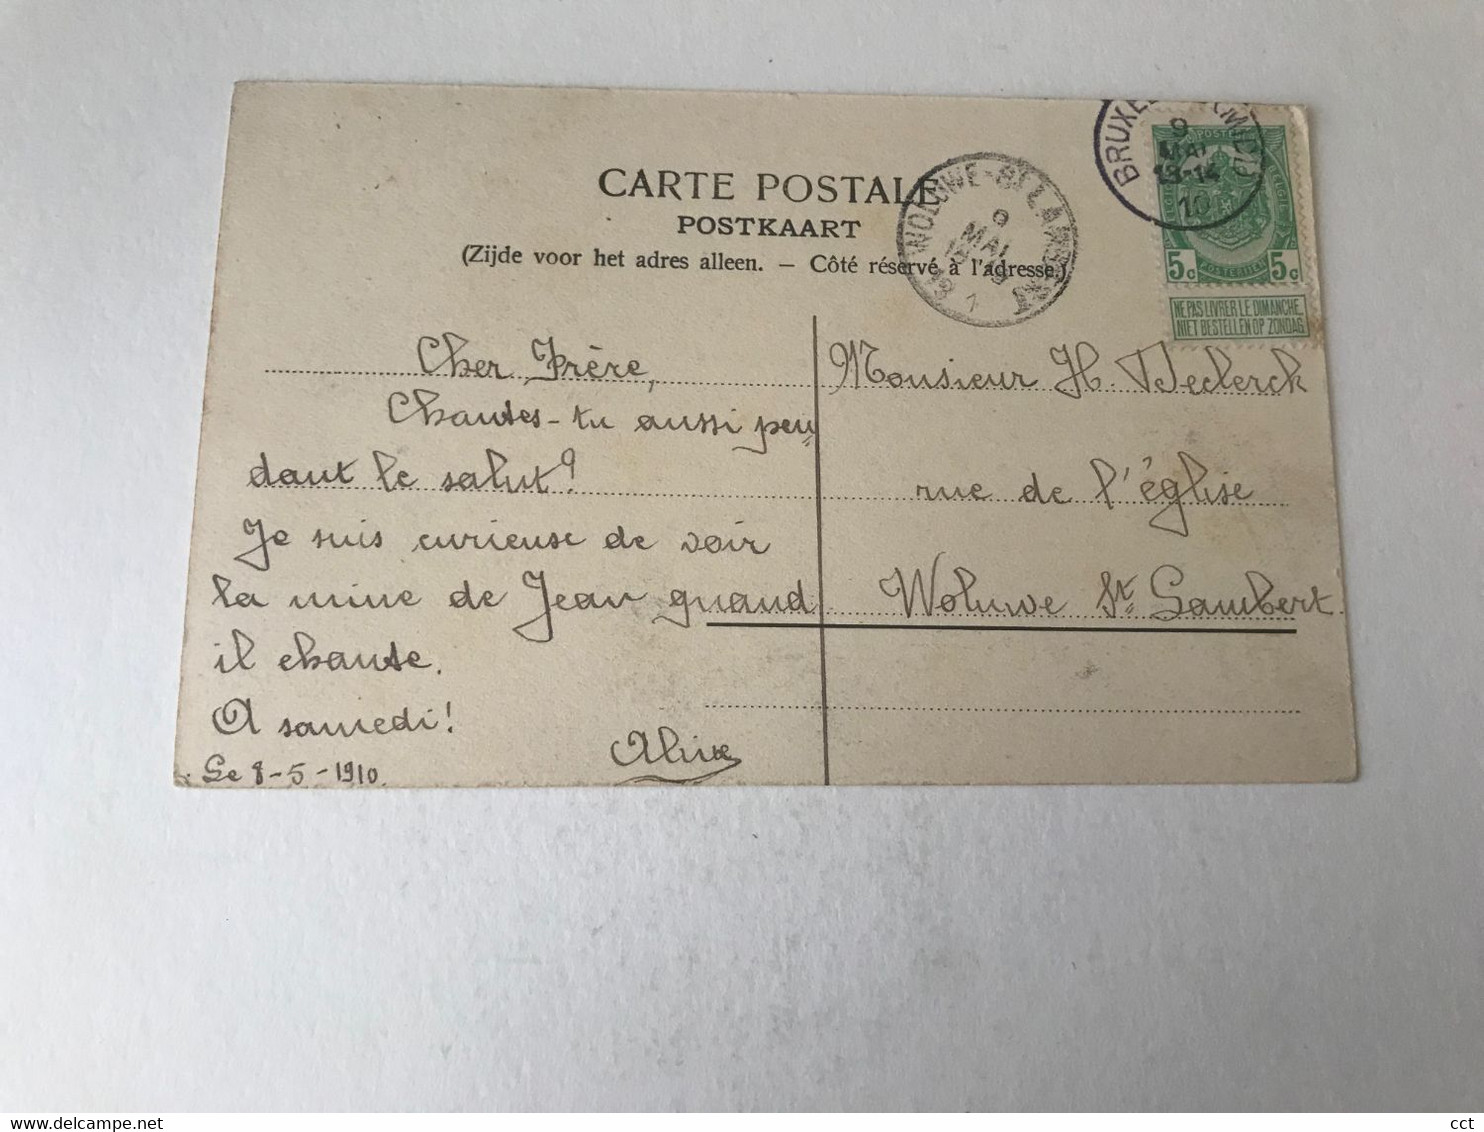 CARTE POSTALE
POSTKAART
(Zijde voor het adres alleen. — Côté réservé à l'adresse.)
WOLUWE-St LAMBERT
9
MAI
BRUXEL
9
MAI
13-14
10
POSTES
5c POSTERIJEN 5c
NE PAS LIVRER LE DIMANCHE.
NIET BESTELLEN OP ZONDAG
Cher Frère,
Chantes-tu aussi pen
dant le salut?
Je suis curieuse de voir
la mine de Jean quand
il chante.
A samedi!
Le 8-5-1910.
Alice
Monsieur H. Declerck
rue de l'église
Woluwe St. Lambert.
cct